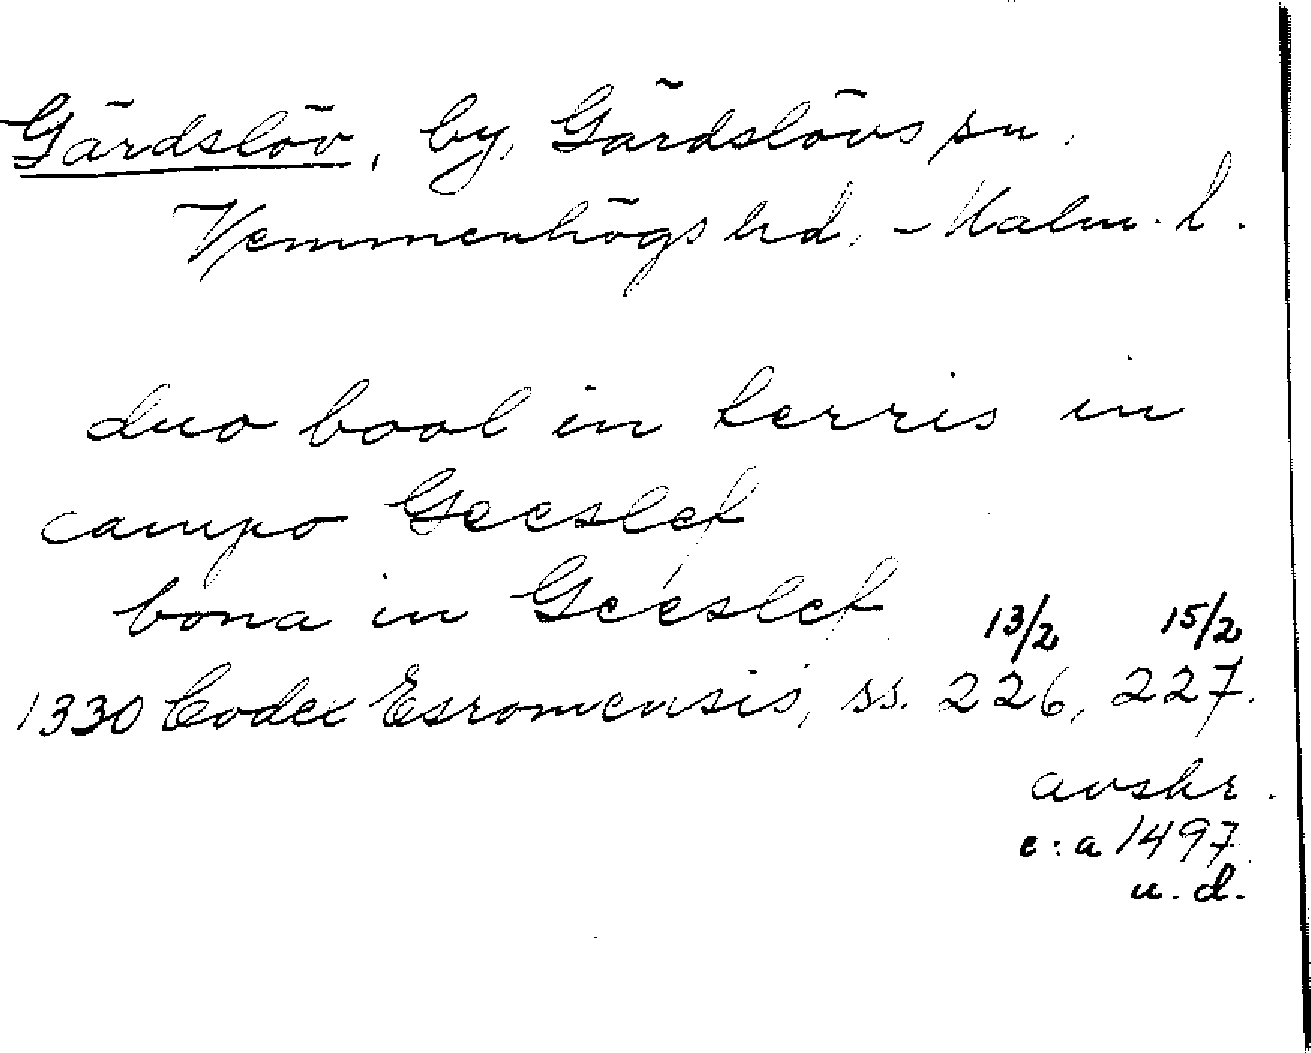 Gärdslöv, by, Gärdslövs sn.
Vemmenhögs hd, Malm. l.
duo bool in terris in
campo Geeslef
bona in Geeslef
13/2 15/2
1330 Codex Esromensis, ss. 226, 227.
avskr.
c:a 1497
u. d.